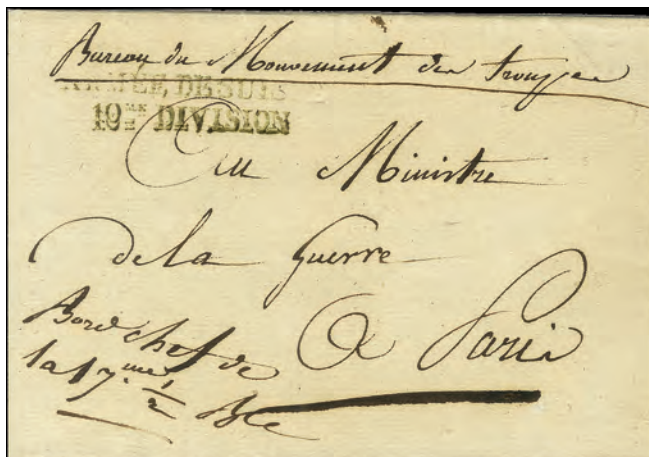 Bureau du Mouvement des troupes
ARMÉE DE SUIS
10ME DIVISION
Au Ministre
de la Guerre
A Paris
chef de
la 17me 1/2 Bde